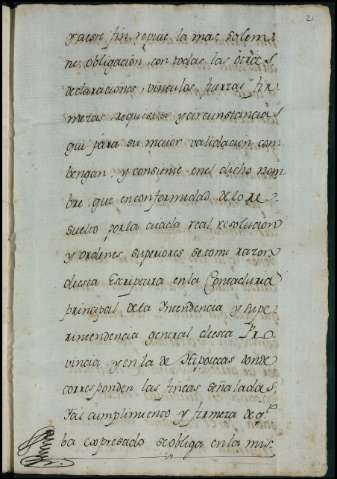 2
y a este fin repite la mas solem
ne obligación con todas las otras
declaraciones, vinculos, fuerzas, fir
mezas, requisitos y circunstancias
que para su maior validacion com
bengan, y consiente en el dicho nom
bre que en conformidad de lo re
suelto por la citada real resolución
y ordenes superiores se tome razon
de esta Escriptura en la Contaduria
principal de la Intendencia y Supe
rintendencia general de esta Pro
vincia y en la de Hipotecas donde
corresponden las fincas señaladas,
Y al cumplimiento y firmeza de q.to
ba expresado se obliga en la mis